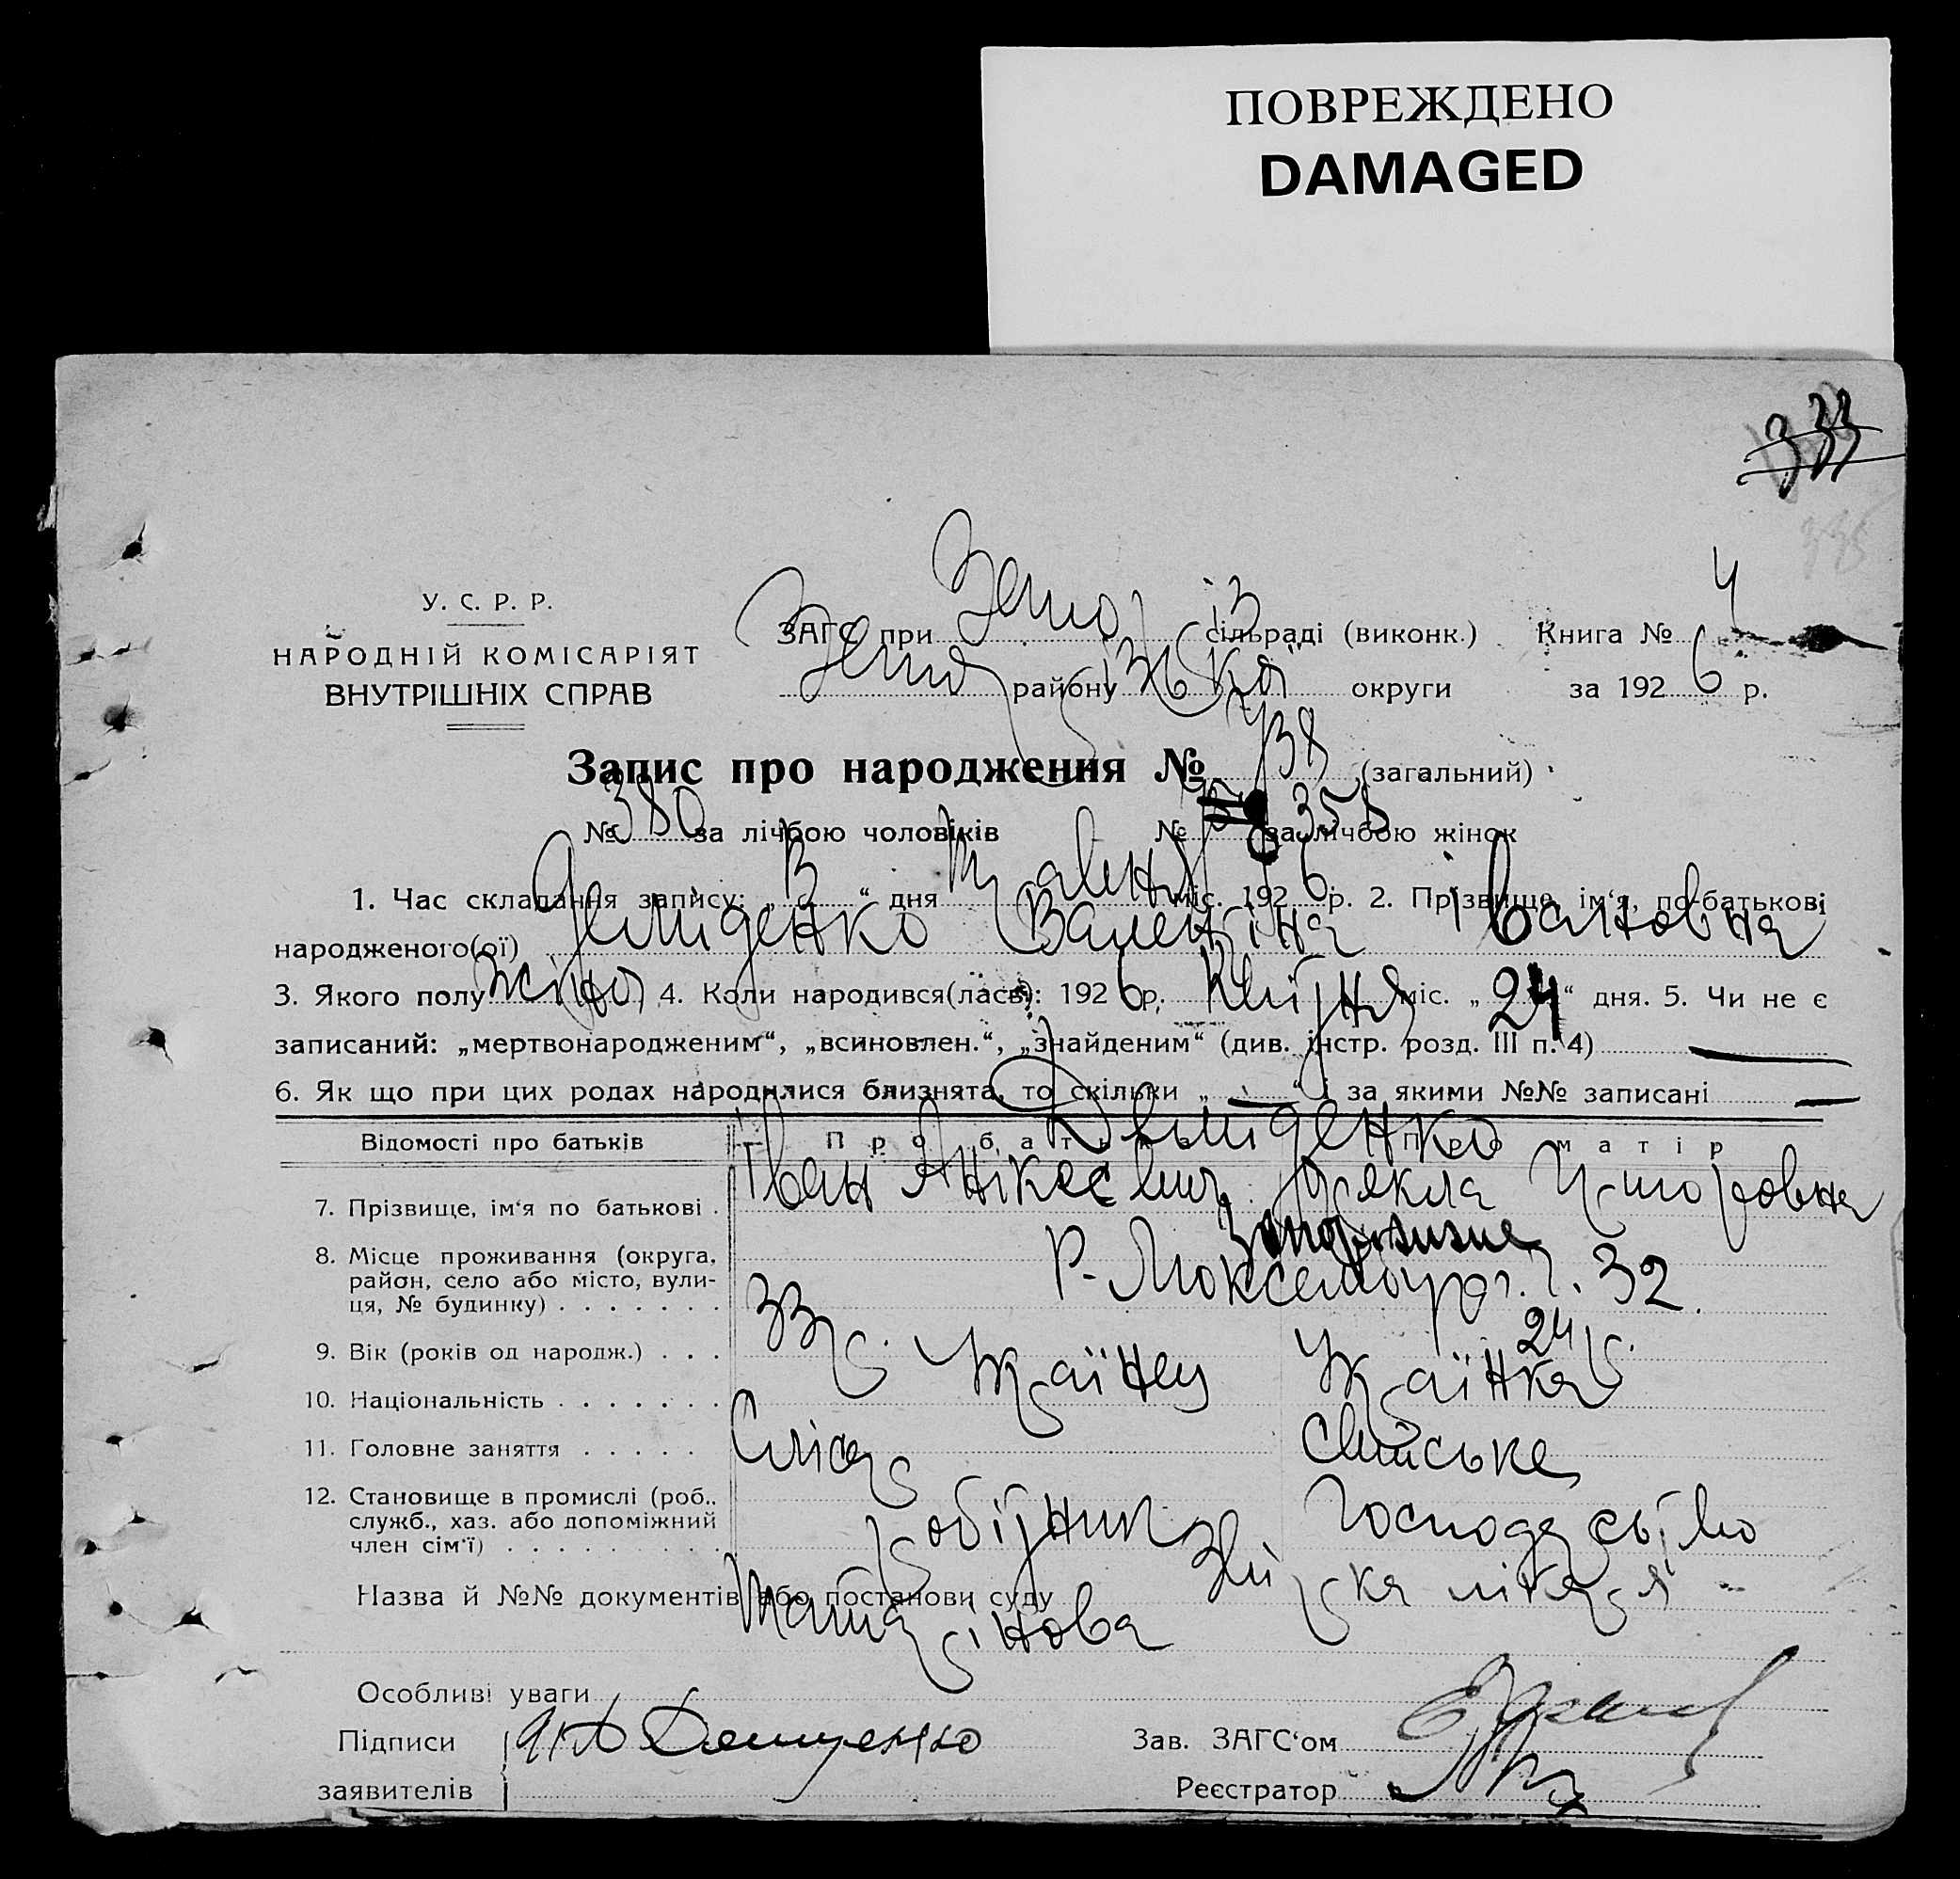 ПОВРЕЖДЕНО
DAMAGED
333
335
У. С. Р. Р.
НАРОДНІЙ КОМІСАРІЯТ
ВНУТРІШНІХ СПРАВ
ЗАГС при сільраді (виконк.) Книга № 4
району округи за 1926 р.
Запис про народження № 738 (загальний)
№ 380 за лічбою чоловіків № 358 за лічбою жінок
1. Час складання запису: „3“ дня Травня міс. 1926 р. 2. Прізвище, ім‘я, по-батькові
народженого(ої) Демиденко Валентіна Івановна
3. Якого полу жіно 4. Коли народився(лась): 1926 р. Квітня міс. „24“ дня. 5. Чи не є
записаний: „мертвонародженим“, „всиновлен.“, „знайденим“ (див. інстр. розд. III п. 4) —
6. Як що при цих родах народилися близнята, то скільки „—“ і за якими №№ записані —
Відомості про батьків Про батька Про матір
Демиденко
7. Прізвище, ім‘я по батькові . Іван Анікеєвич Текля Григоровна
8. Місце проживання (округа, район, село або місто, вулиця, № будинку) . . . . . . . Запоріжжя
Р. Люксембург. 32.
9. Вік (років од народж.) . . . 33 р. 24 р.
10. Національність . . . . . . . Українец Українка
11. Головне заняття . . . . . Слюсар хатнє
12. Становище в промислі (роб., служб., хаз. або допоміжний член сім‘ї) . . . . . . . . . робітник господарство
Назва й №№ документів або постанови суду лікаря
Особливі уваги
Підписи
заявителів
Зав. ЗАГС‘ом
Реєстратор